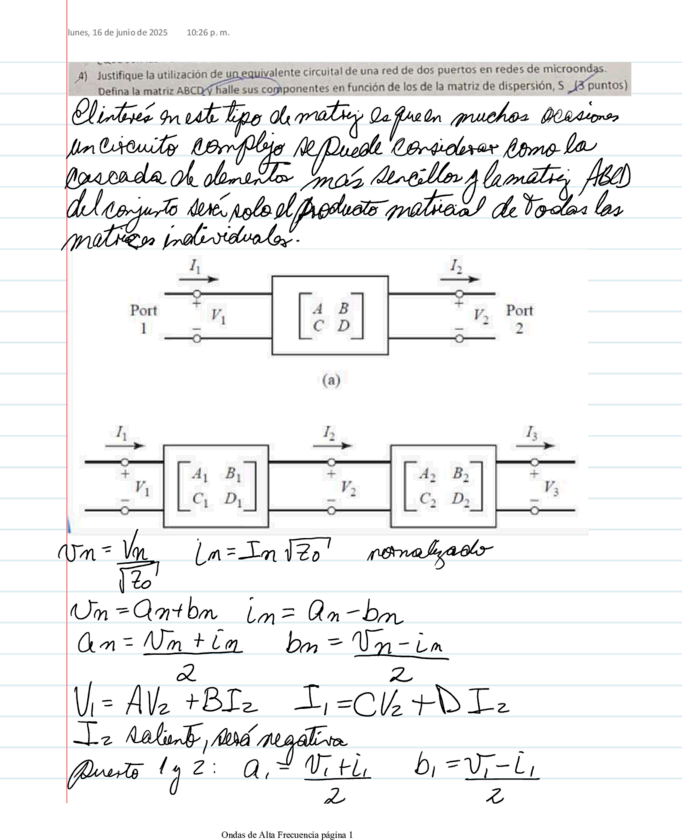 lunes, 16 de junio de 2025 10:26 p. m.
A) Justifique la utilización de un equivalente circuital de una red de dos puertos en redes de microondas.
Defina la matriz ABCD y halle sus componentes en función de los de la matriz de dispersión, S (3 puntos)
El interés en este tipo de matriz es que en muchos ocasiones
un circuito complejo se puede considerar como la
cascada de elementos más sencillos y la matriz ABCD
del conjunto será solo el producto matricial de todas las
matrices individuales.
I₁ I₂
Port 1 + V₁ − [A B C D] + V₂ − Port 2
(a)
I₁ I₂ I₃
+ V₁ − [A₁ B₁ C₁ D₁] + V₂ − [A₂ B₂ C₂ D₂] + V₃ −
vn = Vn/√Zo in = In √Zo normalizado
vn = an + bn in = an − bn
an = (vn + in)/2 bn = (vn − in)/2
V₁ = AV₂ + BI₂ I₁ = CV₂ + DI₂
I₂ saliente, será negativa
puerto 1 y 2: a₁ = (v₁ + i₁)/2 b₁ = (v₁ − i₁)/2
Ondas de Alta Frecuencia página 1